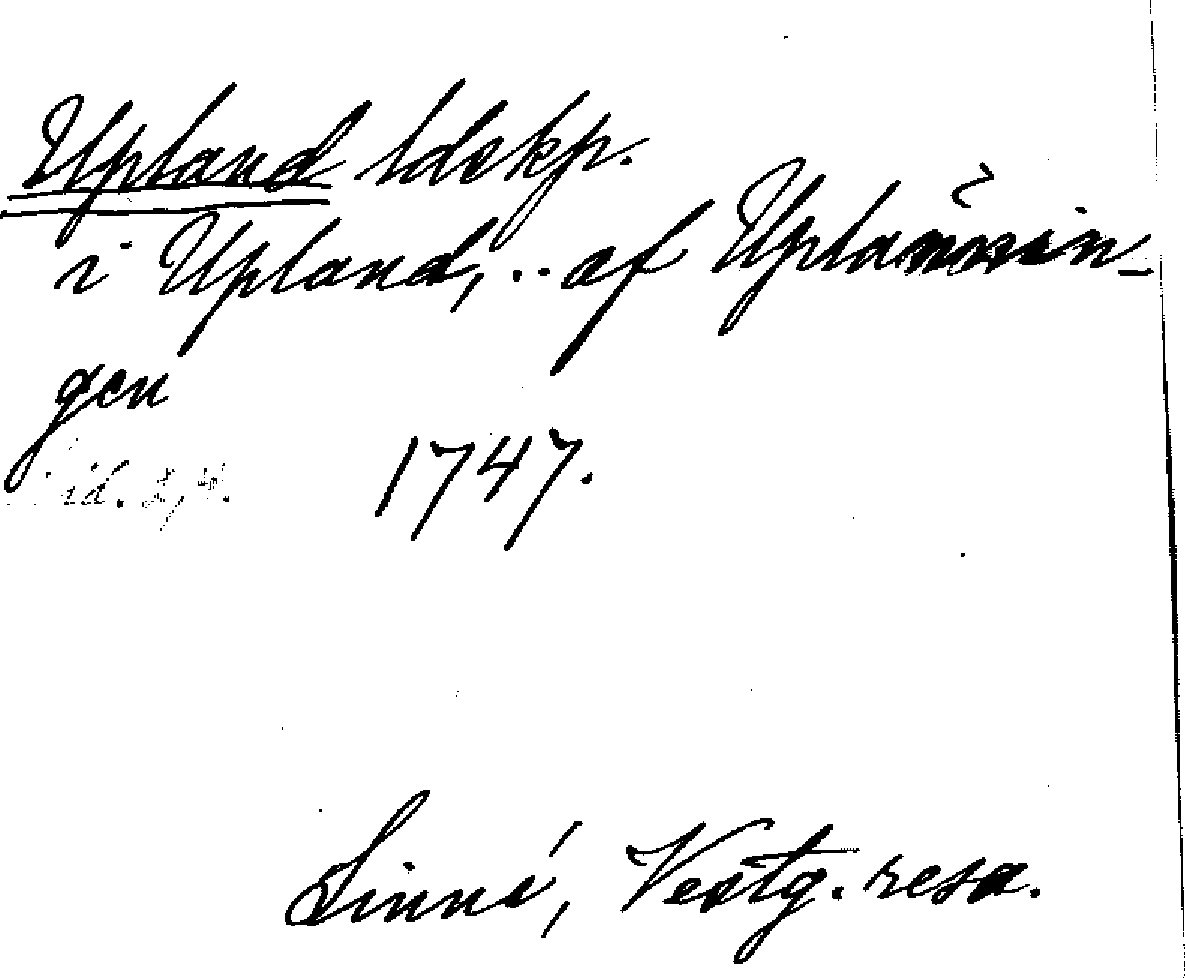 Upland ldskp.
i Upland, .. af Uplännin-
gen
1747.
Linné, Vestg. resa.